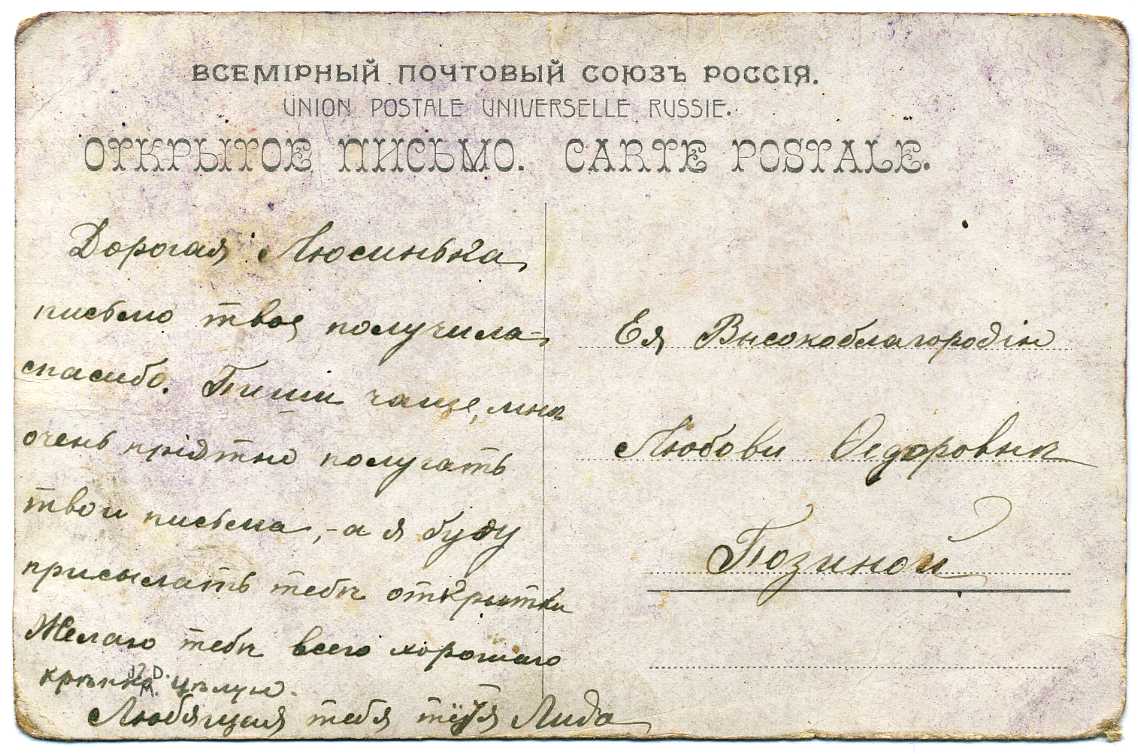 ВСЕМІРНЫЙ ПОЧТОВЫЙ СОЮЗЪ РОССІЯ.
UNION POSTALE UNIVERSELLE RUSSIE.
ОТКРЫТОЕ ПИСЬМО. CARTE POSTALE.
Дорогая Люсинька,
письмо твое получила,
спасибо. Пиши чаще, мнѣ
очень пріятно получать
твои письма, - а я буду
присылать тебѣ открытки
Желаю тебѣ всего хорошаго
крѣпко цѣлую.
Любящая тебя тётя Лида
Ея Высокоблагородію
Любови Ѳедоровнѣ
Позиной